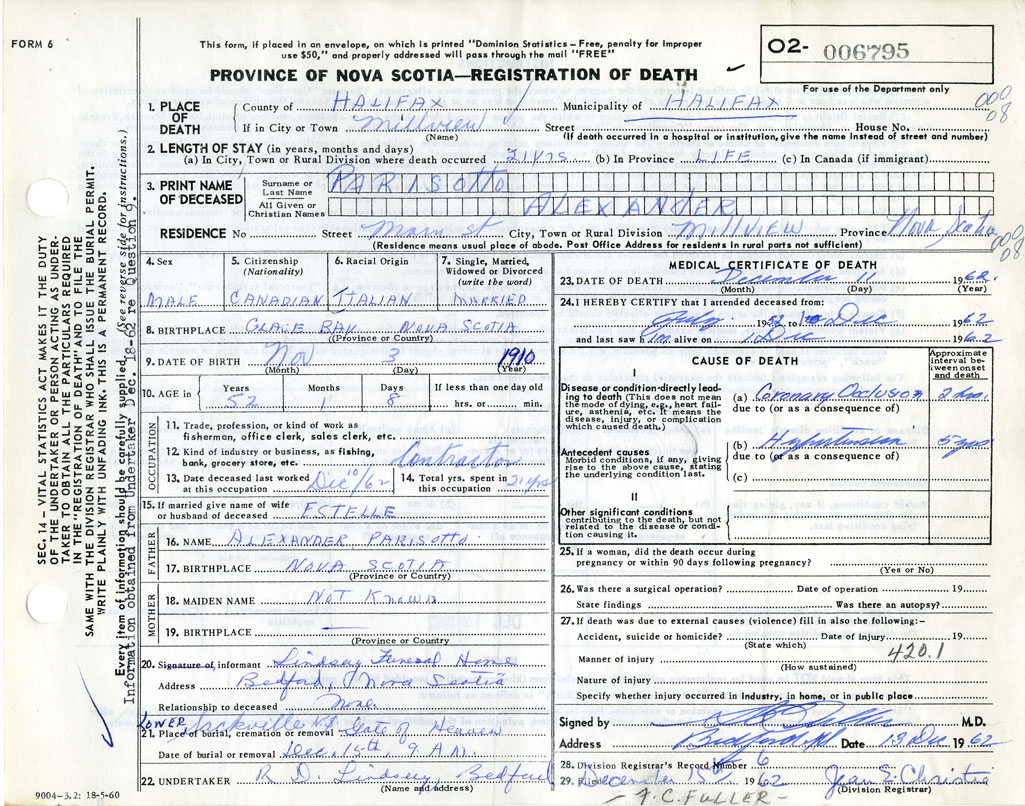 FORM 6
This form, if placed in an envelope, on which is printed "Dominion Statistics—Free, penalty for improper
use $50," and properly addressed will pass through the mail "FREE"
O2- 006795
For use of the Department only
PROVINCE OF NOVA SCOTIA—REGISTRATION OF DEATH
000
08
1. PLACE OF DEATH
County of HALIFAX Municipality of HALIFAX
If in City or Town Millview Street House No.
(Name) (If death occurred in a hospital or institution, give the name instead of street and number)
2. LENGTH OF STAY (in years, months and days)
(a) In City, Town or Rural Division where death occurred 21 yrs (b) In Province LIFE (c) In Canada (if immigrant)
3. PRINT NAME OF DECEASED
Surname or Last Name PARISOTTO
All Given or Christian Names ALEXANDER
RESIDENCE No Street Main st City, Town or Rural Division MILLVIEW Province Nova Scotia
(Residence means usual place of abode. Post Office Address for residents in rural parts not sufficient)
000
08
4. Sex
MALE
5. Citizenship
(Nationality)
CANADIAN
6. Racial Origin
ITALIAN
7. Single, Married, Widowed or Divorced
(write the word)
MARRIED
8. BIRTHPLACE GLACE BAY NOVA SCOTIA
(Province or Country)
9. DATE OF BIRTH Nov 3 1910
(Month) (Day) (Year)
10. AGE in
Years 52
Months 1
Days 8
If less than one day old
hrs. or min.
OCCUPATION
11. Trade, profession, or kind of work as
fisherman, office clerk, sales clerk, etc.
12. Kind of industry or business, as fishing,
bank, grocery store, etc. Contractor
13. Date deceased last worked
at this occupation Dec 10/62
14. Total yrs. spent in
this occupation 21 yrs
15. If married give name of wife
or husband of deceased ESTELLE
FATHER
16. NAME ALEXANDER PARISOTTO
17. BIRTHPLACE NOVA SCOTIA
(Province or Country)
MOTHER
18. MAIDEN NAME NOT KNOWN
19. BIRTHPLACE —
(Province or Country)
20. Signature of informant Lindsay Funeral Home
Address Bedford, Nova Scotia
Relationship to deceased None.
LOWER Sackville N.S.
21. Place of burial, cremation or removal Gate of Heaven
Date of burial or removal Dec. 15th, 9 A.M.
22. UNDERTAKER R. D. Lindsay, Bedford
(Name and address)
9004-3.2: 18-5-60
MEDICAL CERTIFICATE OF DEATH
23. DATE OF DEATH December 11 1962.
(Month) (Day) (Year)
24. I HEREBY CERTIFY that I attended deceased from:
July 1952 to Dec 1962
and last saw him alive on 1 Dec 1962
CAUSE OF DEATH
Approximate interval between onset and death
I
Disease or condition directly leading to death (This does not mean
the mode of dying, e.g., heart failure, asthenia, etc. It means the
disease, injury, or complication
which caused death.)
(a) Coronary Occlusion 2 hrs.
due to (or as a consequence of)
Antecedent causes
Morbid conditions, if any, giving
rise to the above cause, stating
the underlying condition last.
(b) Hypertension 5 yrs
due to (or as a consequence of)
(c)
II
Other significant conditions
contributing to the death, but not
related to the disease or condition causing it.
25. If a woman, did the death occur during
pregnancy or within 90 days following pregnancy?
(Yes or No)
26. Was there a surgical operation? Date of operation 19
State findings Was there an autopsy?
27. If death was due to external causes (violence) fill in also the following:—
Accident, suicide or homicide? Date of injury 19
(State which)
Manner of injury 420.1
(How sustained)
Nature of injury
Specify whether injury occurred in industry, in home, or in public place
Signed by Fuller M.D.
Address Bedford NS Date 13 Dec 1962
28. Division Registrar's Record Number 6
29. Filed December 15th 1962 Jean E. Christie
(Division Registrar)
- F. C. FULLER -
SEC. 14—VITAL STATISTICS ACT MAKES IT THE DUTY
OF THE UNDERTAKER OR PERSON ACTING AS UNDER-
TAKER TO OBTAIN ALL THE PARTICULARS REQUIRED
IN THE "REGISTRATION OF DEATH" AND TO FILE THE
SAME WITH THE DIVISION REGISTRAR WHO SHALL ISSUE THE BURIAL PERMIT.
WRITE PLAINLY WITH UNFADING INK. THIS IS A PERMANENT RECORD.
Every item of information should be carefully supplied. (See reverse side for instructions.)
Information obtained from Undertaker Dec. 18-62 re Question 9.